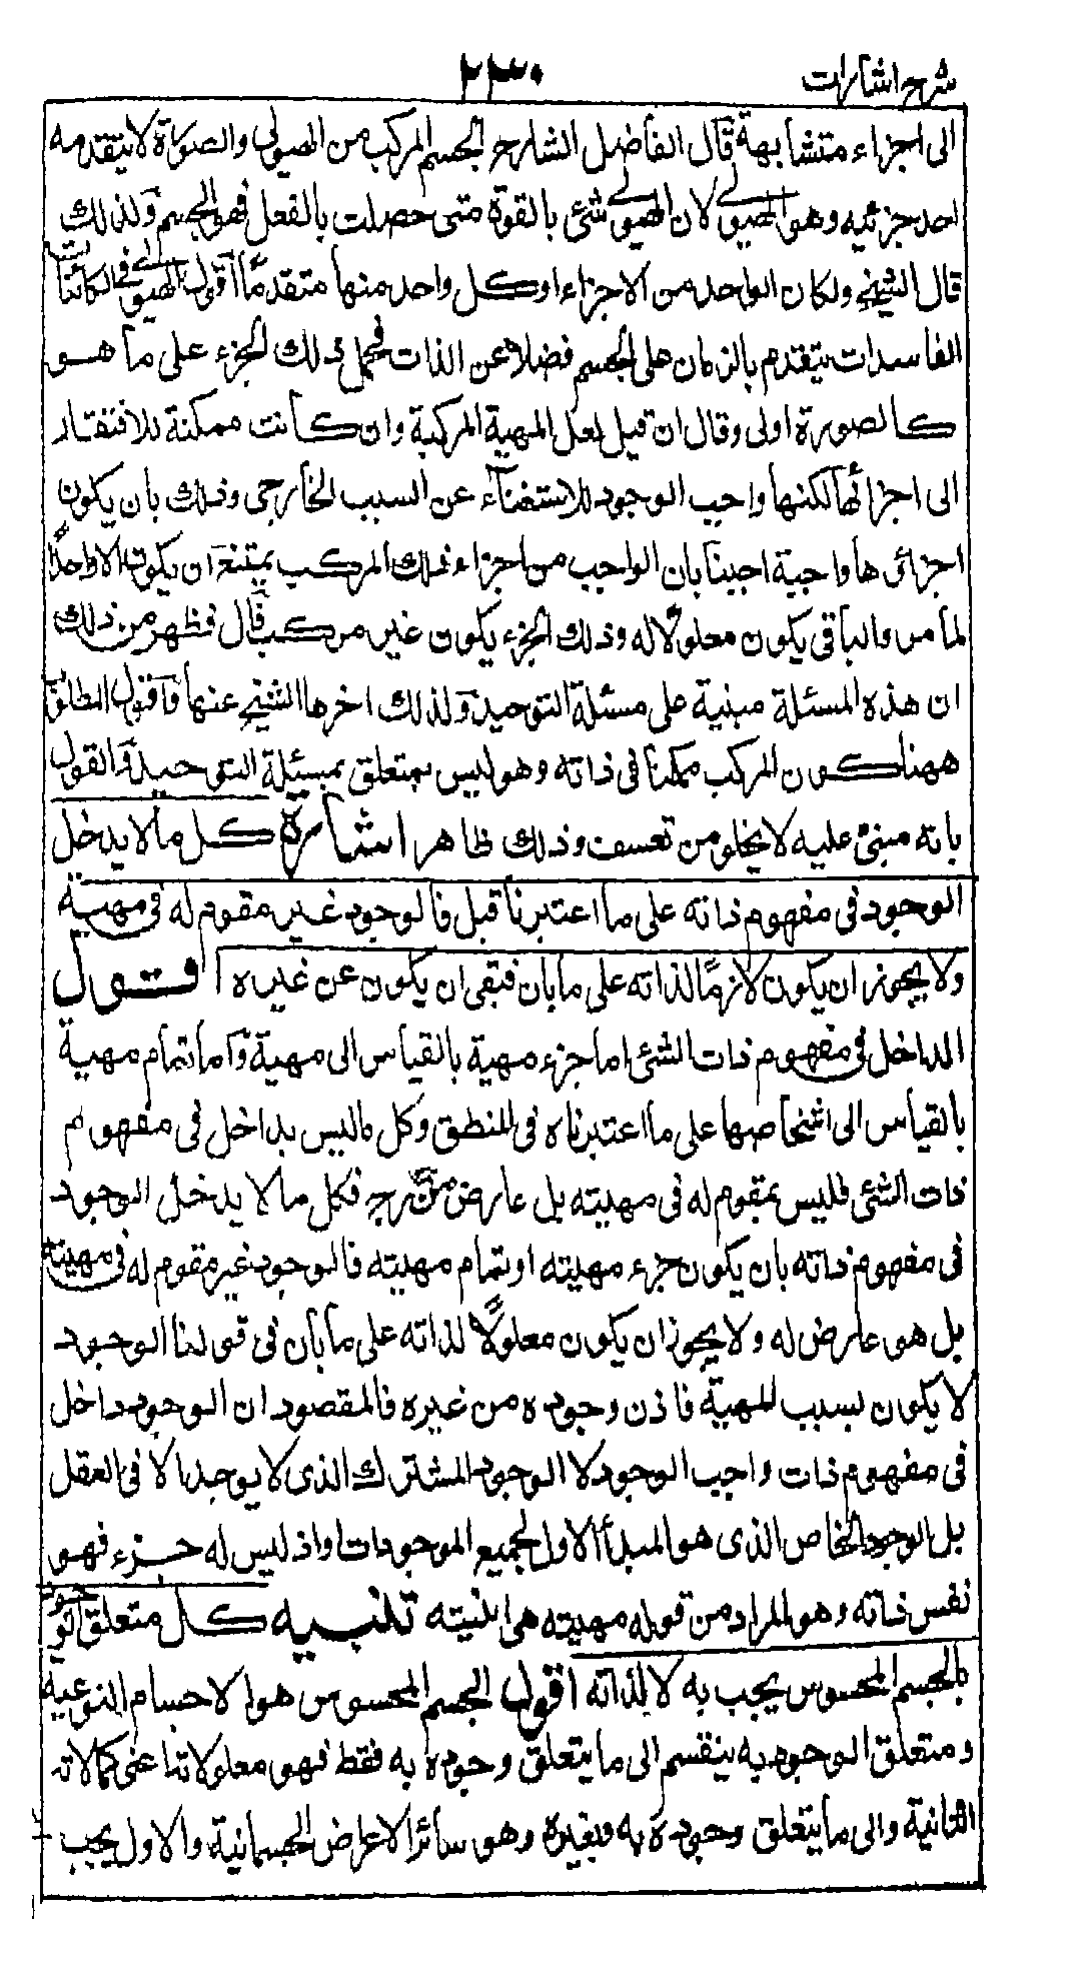 شرح اشارات
٢٣٠
الى اجزاء متشابهة قال الفاضل الشارح الجسم المركب من الهيولى والصورة لا يتقدمه
احد جزئيه وهو الهيولى لان الهيولى شئ بالقوة متى حصلت بالفعل فهو الجسم ولذلك
قال الشيخ ولكان الواحد من الاجزاء او كل واحد منها متقدما اقول الهيولى فى الكائنات
الفاسدات يتقدم بالزمان على الجسم فضلا عن الذات فحمل ذلك الجزء على ما هو
كالصورة اولى وقال ان قيل لعل المهية المركبة وان كانت ممكنة للافتقار
الى اجزائها لكنها واجب الوجود للاستغناء عن السبب الخارجى وذلك بان يكون
اجزائها واجبة اجيبنا بان الواجب من اجزاء ذلك المركب يمتنع ان يكون الا واحدا
لما مر والباقى يكون معلولا له وذلك الجزء يكون غير مركب قال فظهر من ذلك
ان هذه المسئلة مبنية على مسئلة التوحيد ولذلك اخرها الشيخ عنها فاقول المطلوب
ههنا كون المركب ممكنا فى ذاته وهو ليس بمتعلق بمسئلة التوحيد والقول
بانه مبنى عليه لا يخلو من تعسف وذلك ظاهر اشارة كل ما لا يدخل
الوجود فى مفهوم ذاته على ما اعتبرنا قبل فالوجود غير مقوم له فى مهيته
ولا يجوز ان يكون لازما لذاته على ما بان فبقى ان يكون عن غيره اقول
الداخل فى مفهوم ذات الشئ اما جزء مهية بالقياس الى مهية واما تمام مهية
بالقياس الى اشخاصها على ما اعتبرناه فى المنطق وكل ما ليس بداخل فى مفهوم
ذات الشئ فليس بمقوم له فى مهيته بل عارض من خارج فكل ما لا يدخل الوجود
فى مفهوم ذاته بان يكون جزء مهيته او تمام مهيته فالوجود غير مقوم له فى مهيته
بل هو عارض له ولا يجوز ان يكون معلولا لذاته على ما بان فى قولنا الوجود
لا يكون بسبب المهية فاذن وجوده من غيره فالمقصود ان الوجود داخل
فى مفهوم ذات واجب الوجود لا الوجود المشترك الذى لا يوجد الا فى العقل
بل الوجود الخاص الذى هو المبدأ الاول لجميع الموجودات واذ ليس له جزء فهو
نفس ذاته وهو المراد من قوله مهيته هى انيته تنبيه كل متعلق الوجود
بالجسم المحسوس يجب به لا لذاته اقول الجسم المحسوس هو الاجسام النوعية
ومتعلق الوجود به ينقسم الى ما يتعلق وجوده به فقط فهو معلولاته اعنى كمالاته
الثانية والى ما يتعلق وجوده به وبغيره وهو سائر الاعراض الجسمانية والاول يجب